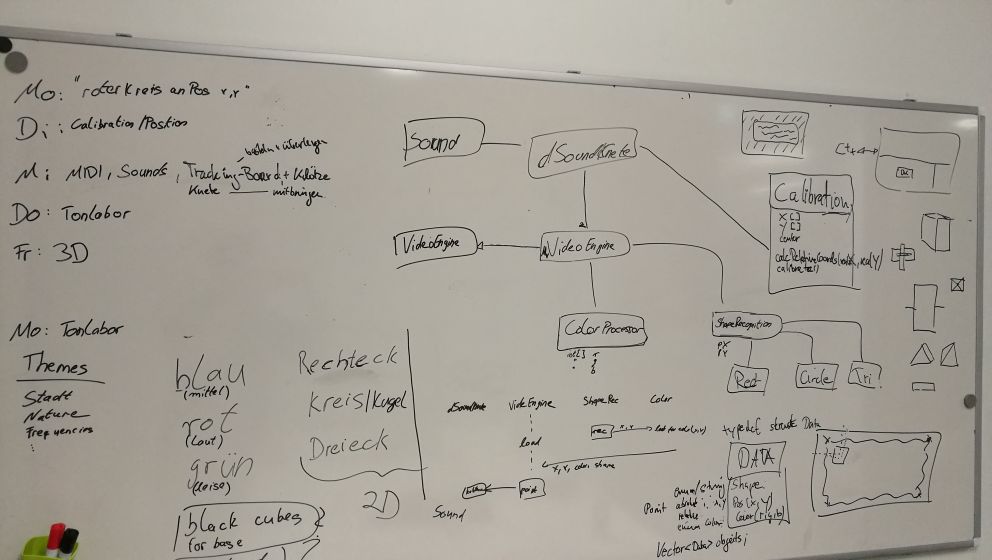 Mo: "roter Kreis an Pos x,y"
Di: Calibration/Position
Mi: MIDI, Sounds, Tracking-Board + Klötze
Knete mitbringen
Do: Tonlabor
Fr: 3D
Mo: Tonlabor
Themes
Stadt
Nature
Frequencies
blau
(mittel)
rot
(laut)
grün
(leise)
black cubes
for base
Rechteck
Kreis/Kugel
Dreieck
2D
Sound
dSoundKnete
VideoEngine
VideoEngine
ColorProcessor
int[]
r
g
b
Calibration
X[]
Y[]
center
calibrate()
ShapeRecognition
PX
PY
Rect
Circle
Tri
VideoEngine
ShapeRec
Color
load
rec
x,y
x, y, color, shape
point
Sound
typedef struct Data
DATA
Shape
Pos(x,y)
Color(r,g,b)
Point
Vector<Data> objects;